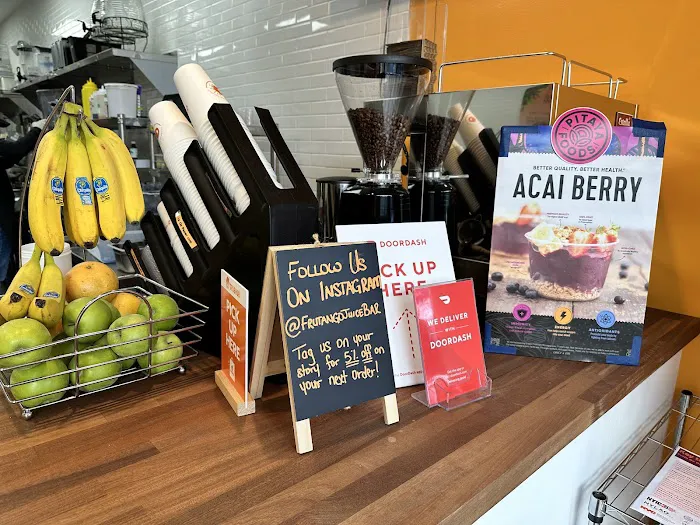 PICK UP
HERE
FOLLOW US
ON INSTAGRAM
@FRUTANGOJUICEBAR
Tag us on your
story for 5% off on
your next order!
DOORDASH
CK UP
HERE
WE DELIVER
WITH
DOORDASH
PITAYA
FOODS
BETTER QUALITY. BETTER HEALTH.
ACAI BERRY
ENERGY
ANTIOXIDANTS